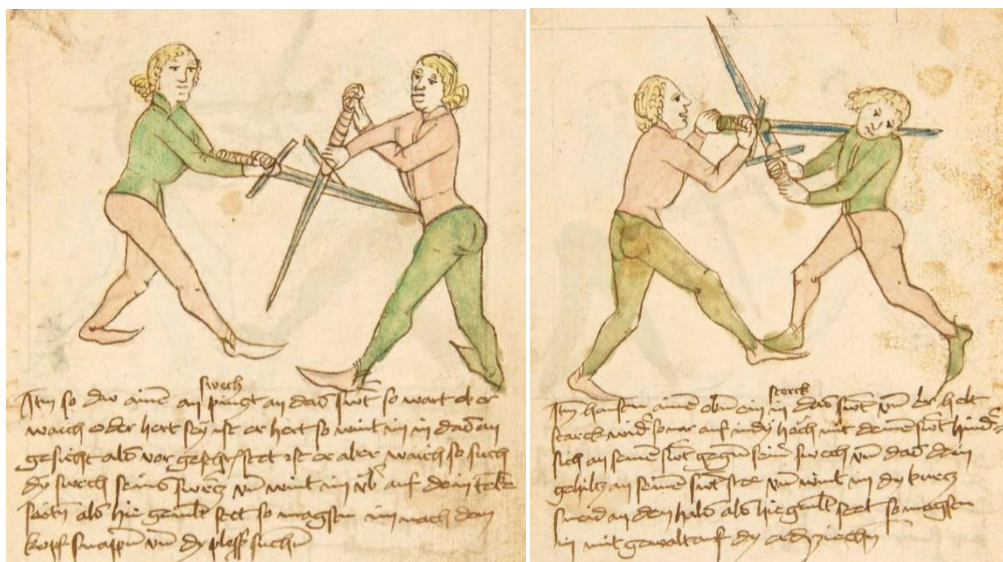 swech
Itm so dw aine an pingt an das swt so wart ob er
waich oder hert sey ist er hert so wint im in das an
gesicht als vor geschr stet ist er aber waich so such
dy swech seins swercz vn wint im vb auf dein
seitn als hie gemlt stet so magstu im nach dem
kopf snappn vn dy plöss suchn
storck
Itm haustu aine obn ein in das swt vn er helt
starck wid so var auf indes hoch mit deine swt hind
sich an seine swt gegn seine swech vn das dein
gehilcz an seine swt ste vn wint im dy kurcz
sneid an den hals als hie gmlt stet so magstu
in mit gewalt auf dy erd ziechn